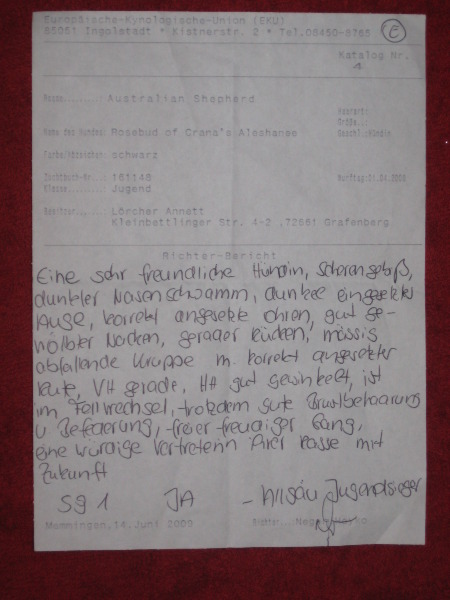 Europäische-Kynologische-Union (EKU)
85051 Ingolstadt * Kistnerstr. 2 * Tel.08450-8765
E
Katalog Nr.
1
Rasse.........: Australian Shepherd
Haarart:
Größe..:
Name des Hundes: Rosebud of Crana's Aleshanee
Geschl.:Hündin
Farbe/Abzeichen: schwarz
Zuchtbuch-Nr...: 161146
Klasse........: Jugend
Besitzer......: Lörcher Annett
Kleinbettlinger Str. 4-2 ,72661 Grafenberg
Richter-Bericht
Eine sehr freundliche Hündin, Scherengebiß,
dunkler Nasenschwamm, dunkel eingesetztes
Auge, korrekt angesetzte Ohren, gut ge-
wölbter Nacken, gerader Rücken, mässig
abfallende Kruppe m. korrekt angesetzter
Rute, VH gerade, HH gut gewinkelt, ist
im Fellwechsel, trotzdem gute Brustbehaarung
u Befederung, freier freudiger Gang,
eine würdige Vertreterin ihrer Rasse mit
Zukunft
SG 1 JA - Allgäu Jugendsieger
Memmingen, 14.Juni 2009
Richter...: